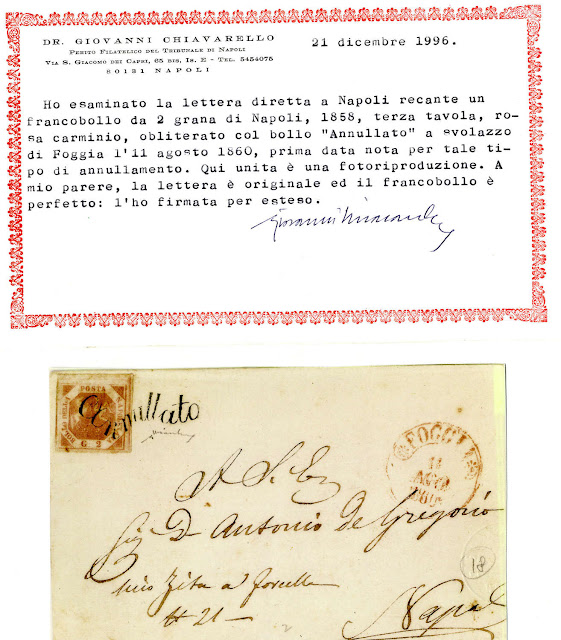 DR. GIOVANNI CHIAVARELLO
PERITO FILATELICO DEL TRIBUNALE DI NAPOLI
VIA S. GIACOMO DEI CAPRI, 65 BIS, IS. E - TEL. 5454075
80131 NAPOLI
21 dicembre 1996.
Ho esaminato la lettera diretta a Napoli recante un
francobollo da 2 grana di Napoli, 1858, terza tavola, ro-
sa carminio, obliterato col bollo "Annullato" a svolazzo
di Foggia l'11 agosto 1860, prima data nota per tale ti-
po di annullamento. Qui unita è una fotoriproduzione. A
mio parere, la lettera è originale ed il francobollo è
perfetto: l'ho firmata per esteso.
POSTA
BOLLO DELLA
G 2
Annullato
FOGGIA
11
AGO
1860
A S. E.
Sig. D. Antonio de Gregorio
Zita a Forcella
# 21 —
Napoli
18
2